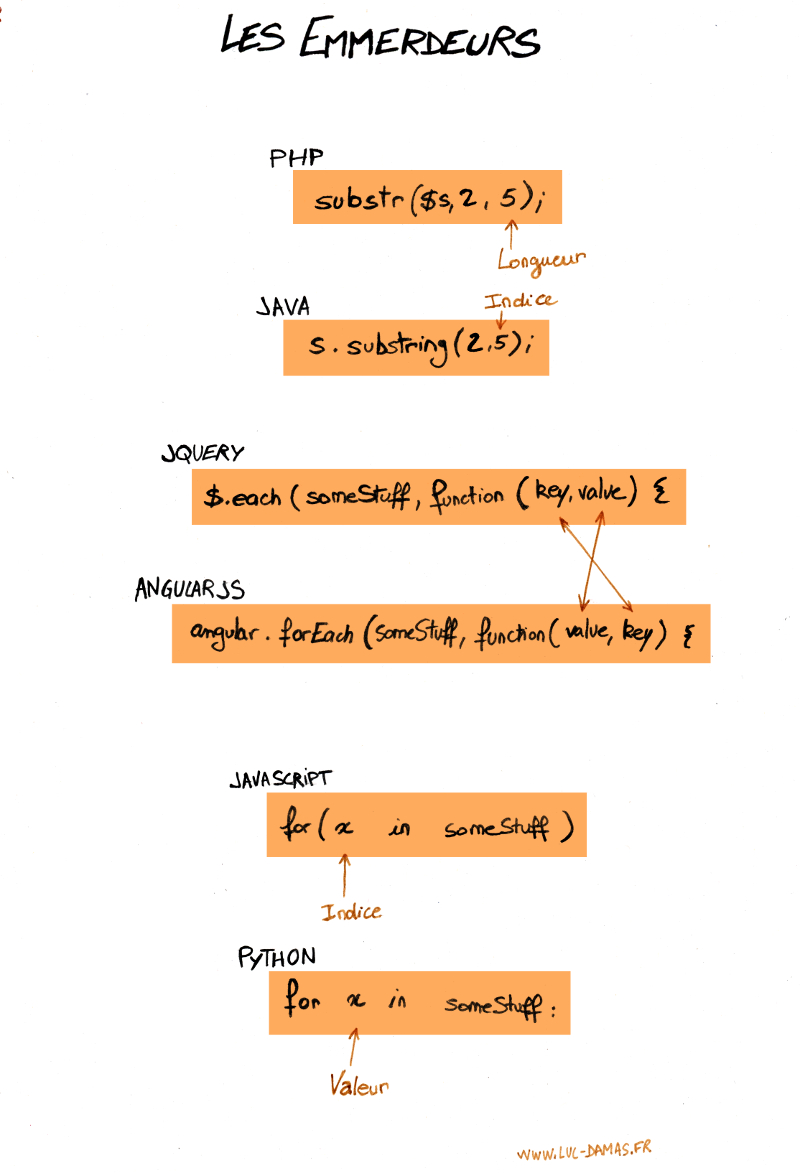 LES EMMERDEURS
PHP
substr($s, 2, 5);
Longueur
Indice
JAVA
s.substring(2,5);
JQUERY
$.each(someStuff, function (key, value) {
ANGULARJS
angular.forEach(someStuff, function(value, key) {
JAVASCRIPT
for( x in someStuff )
Indice
PYTHON
for x in someStuff :
Valeur
WWW.LUC-DAMAS.FR